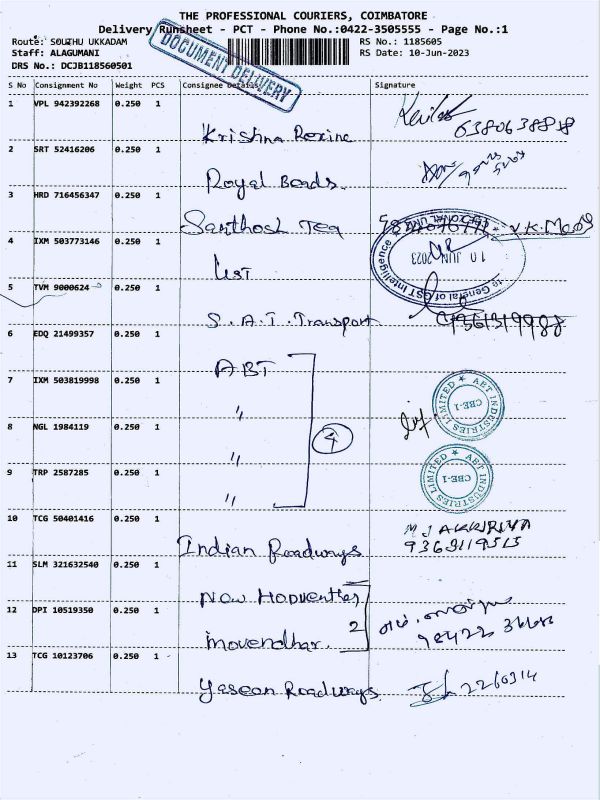 THE PROFESSIONAL COURIERS, COIMBATORE
Delivery Runsheet - PCT - Phone No.:0422-3505555 - Page No.:1
Route: SOUTHU UKKADAM
RS No.: 1185605
Staff: ALAGUMANI
RS Date: 10-Jun-2023
DRS No.: DCJB118560501
DOCUMENT DELIVERY
S No Consignment No Weight PCS Consignee Details Signature
1 VPL 942392268 0.250 1 Krishna 6380638818
2 SRT 52416206 0.250 1 Royal Beads.
3 HRD 716456347 0.250 1 Santhosh Tea
4 IXM 503773146 0.250 1 10 JUN 2023
General of GST Intelligence
5 TVM 9000624 0.250 1 S.A.T. Transport 9361319988
6 EDQ 21499357 0.250 1 ABT
7 IXM 503819998 0.250 1 " ABT INDUSTRIES LIMITED CBE-1
8 NGL 1984119 0.250 1 " 4
9 TRP 2587285 0.250 1 " ABT INDUSTRIES LIMITED CBE-1
10 TCG 50401416 0.250 1 Indian Roadways
11 SLM 321632540 0.250 1 New
12 DPI 10519350 0.250 1 movendhar. 2
13 TCG 10123706 0.250 1 Yaseen Roadways